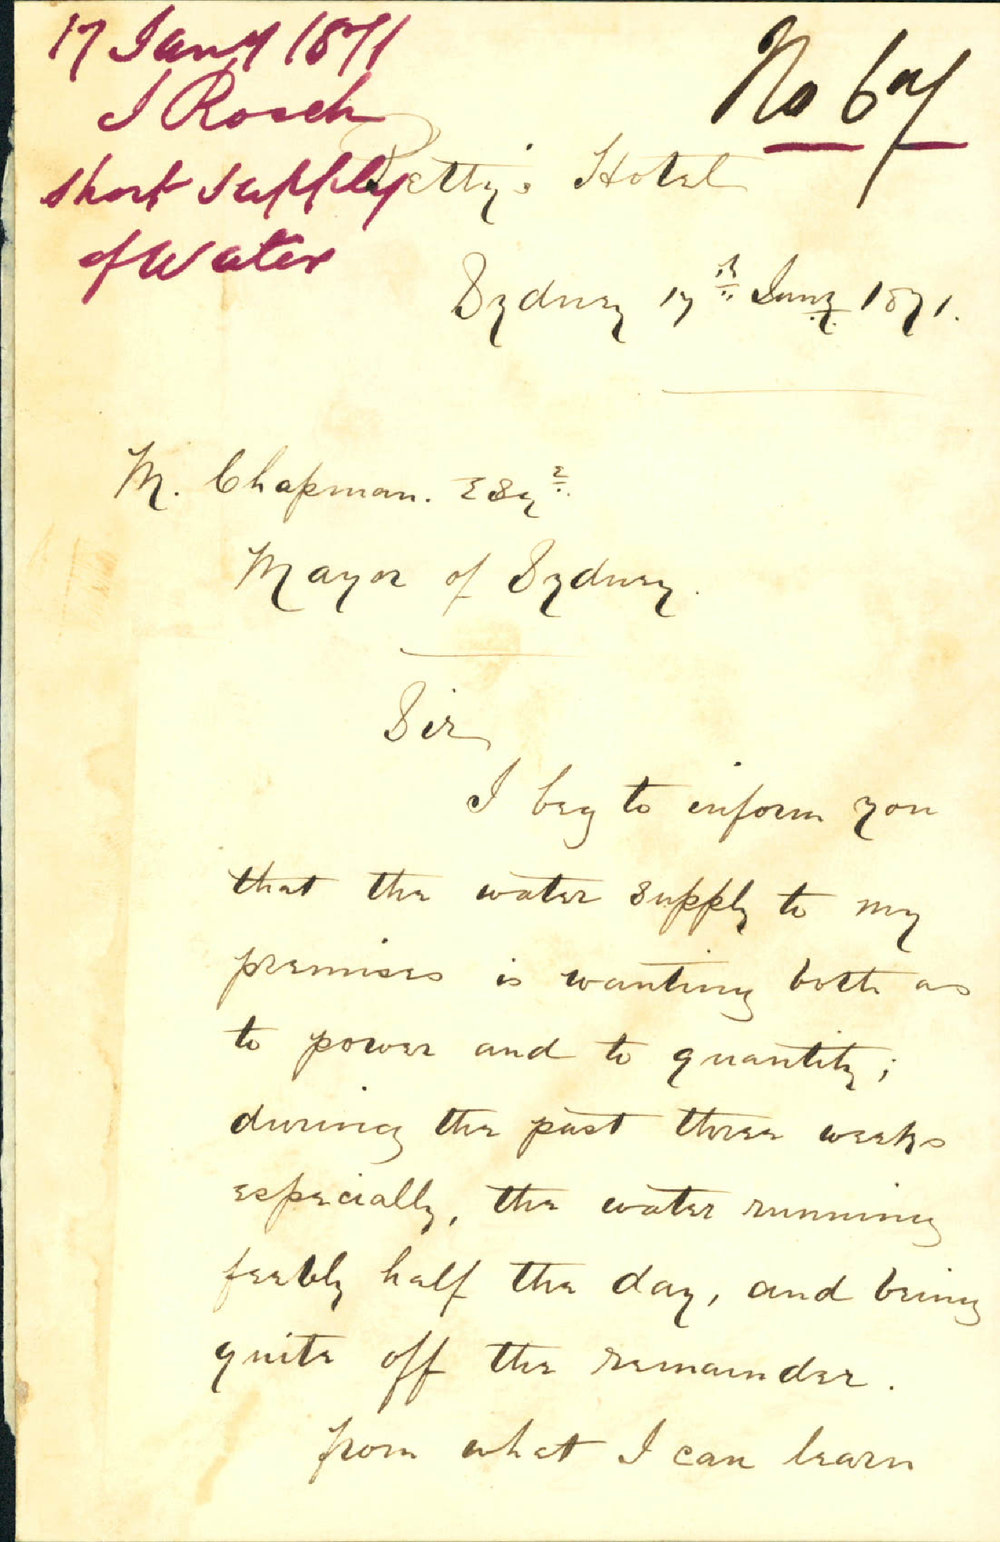 17 Jany 1871
J Roach
short supply
of Water
No 67
Petty's Hotel
Sydney 17th Jany 1871.
M. Chapman. Esqre
Mayor of Sydney.
Sir
I beg to inform you
that the water supply to my
premises is wanting both as
to power and to quantity;
during the past three weeks
especially, the water running
feebly half the day, and being
quite off the remainder.
from what I can learn